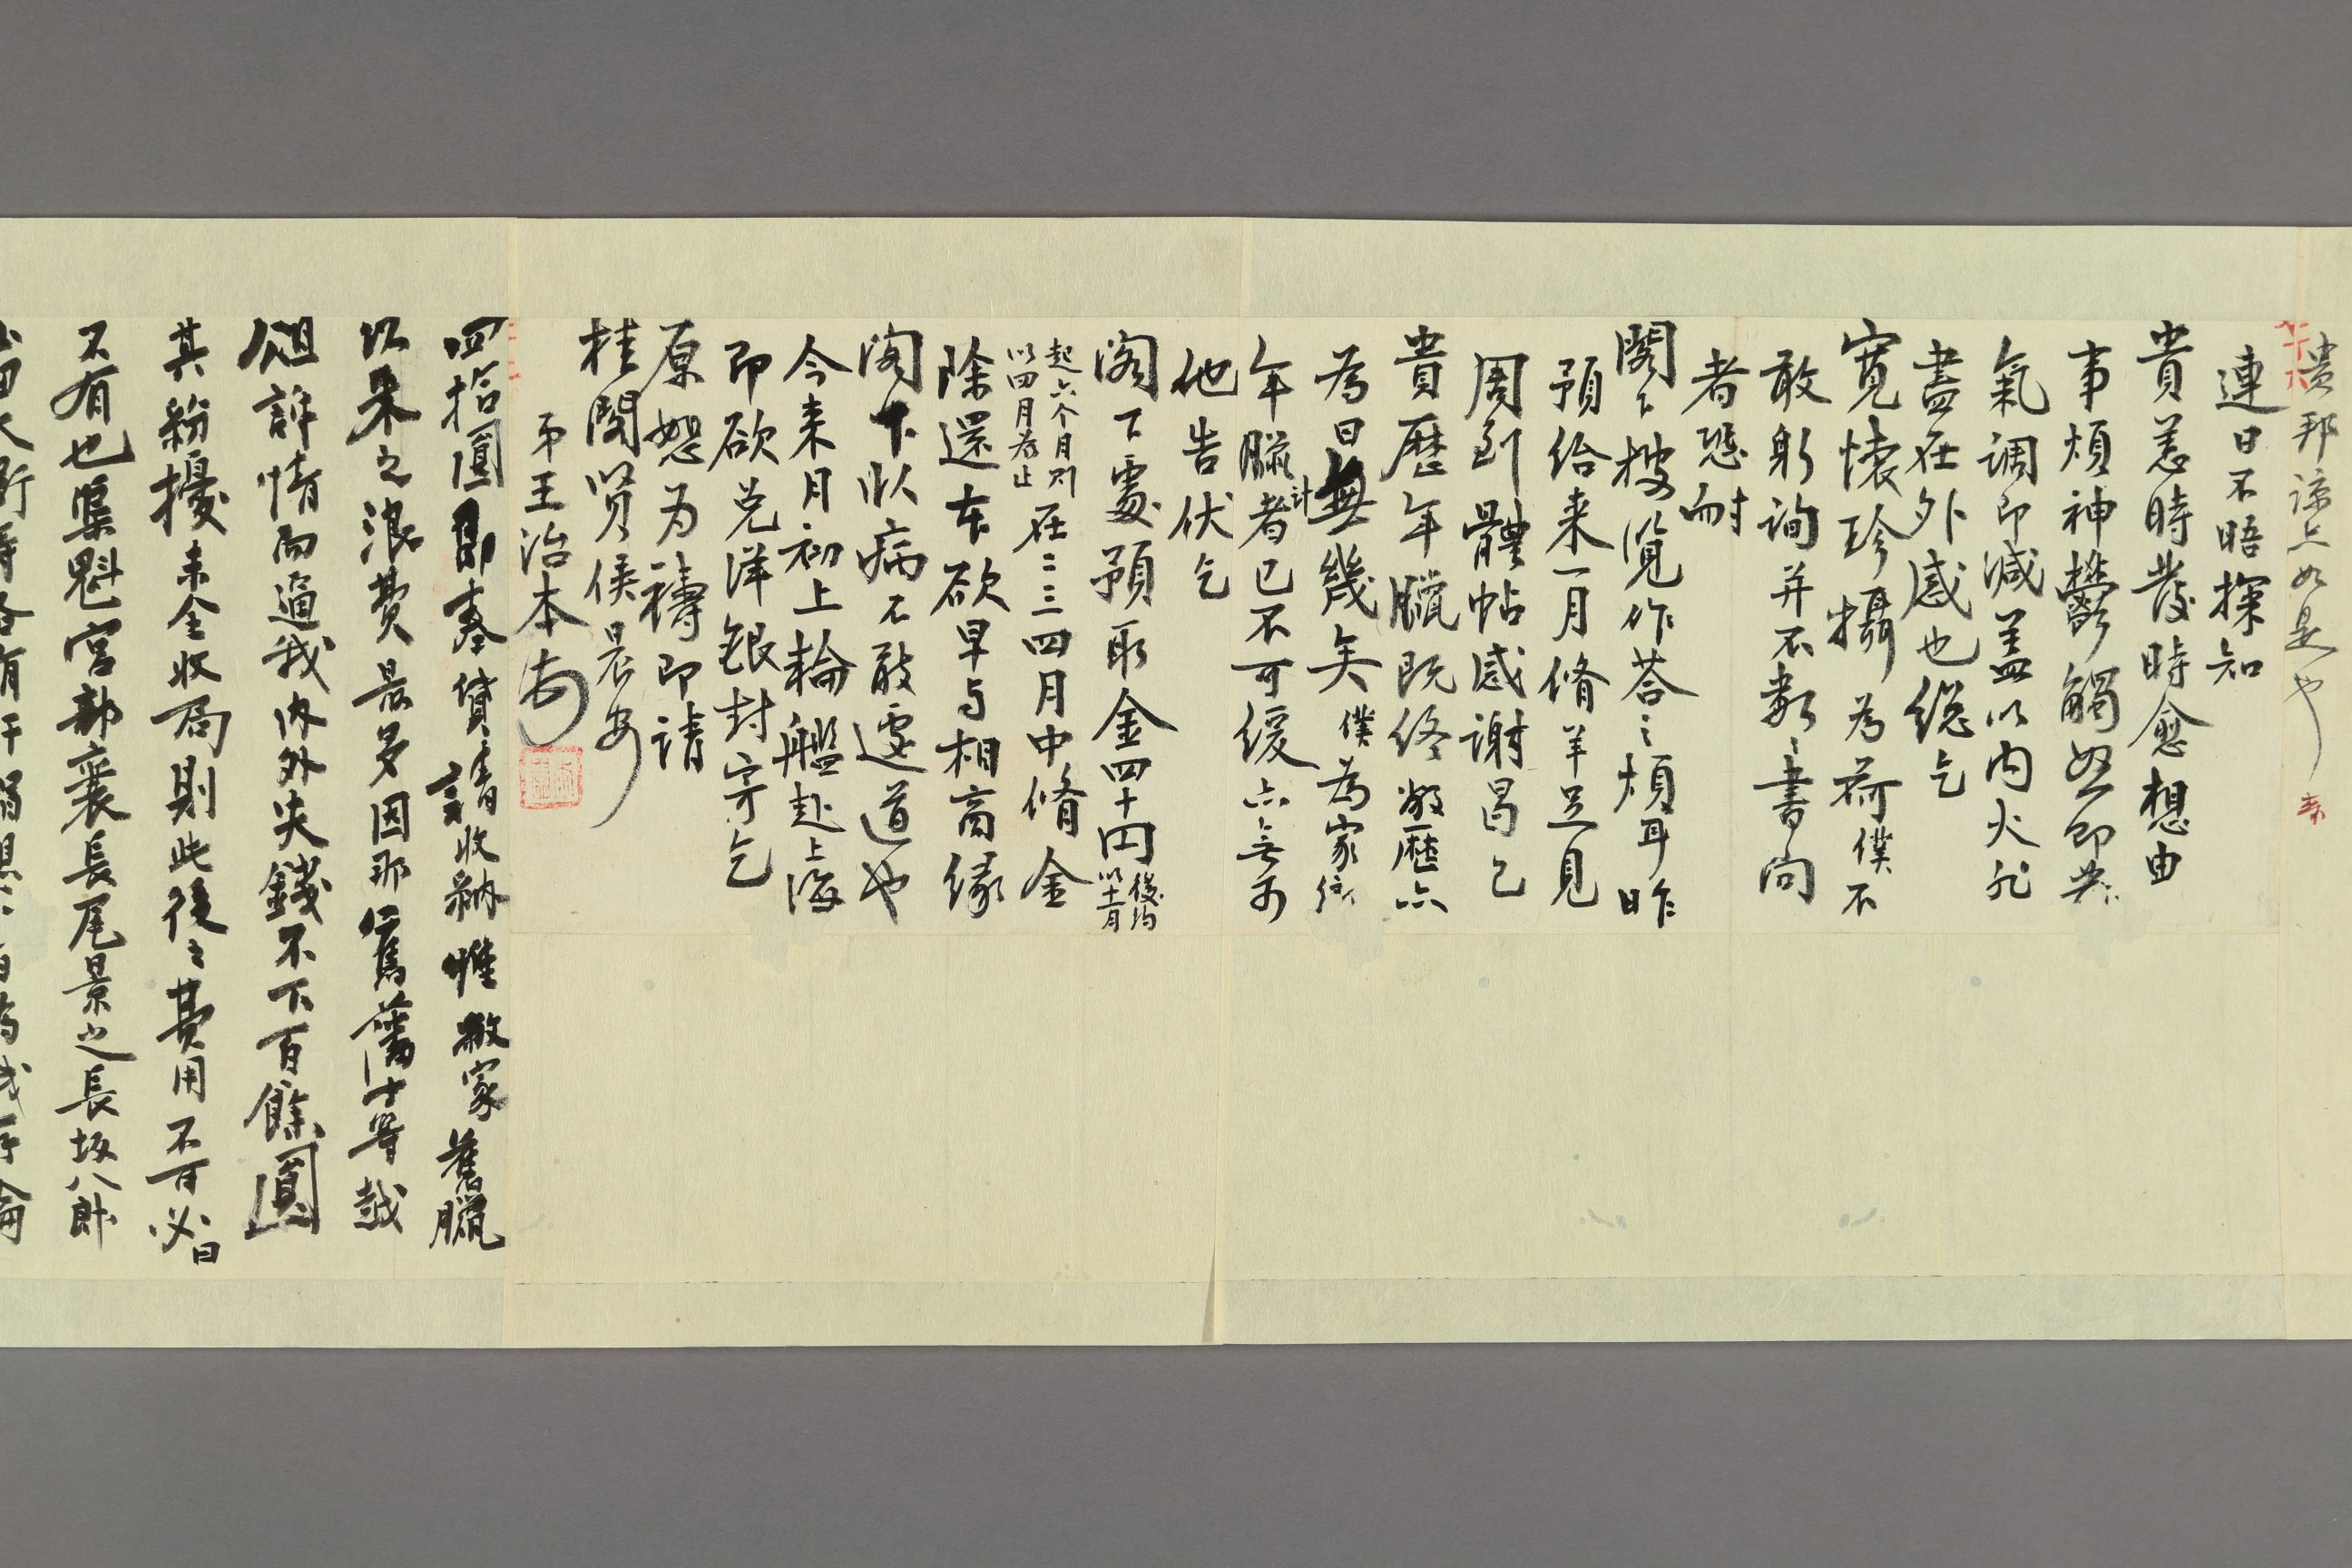 貴邦諒亦如是也
連日不晤探知
貴恙時發時愈想由
事煩神鬱觸怒即
氣調即減蓋以內火
盡在外感也總乞
寬懷珍攝為荷僕不
敢躬詢并不敷〻書問
者恐耐
閣下披覽作荅〻煩耳昨
預給来一月脩羊足見
周到體帖感謝曷已
貴歷年臘既終敝歷亦
為日無幾矣僕為家
年臘計者已不可緩亦無可
他告伏乞
閣下處預取金四十円後約以十一月
起六个月則以四月為止在二三四月中脩金
除還本欲早与相商緣
閣下以病不敢遽道也
今来月初上輪艦赴上海
即欲兌洋銀封寄乞
原恕为禱即請
桂閣賢侯晨安
弟王治本
四拾圓即奉貸請收納惟敝家舊臘
以来之浪費最多因那舊藩士等越
俎訴情而逼我內外失錢不下百餘圓
其紛擾未全收局則此後之費用不可必曰
不有也魁宮部襄長尾景之長坂八郎